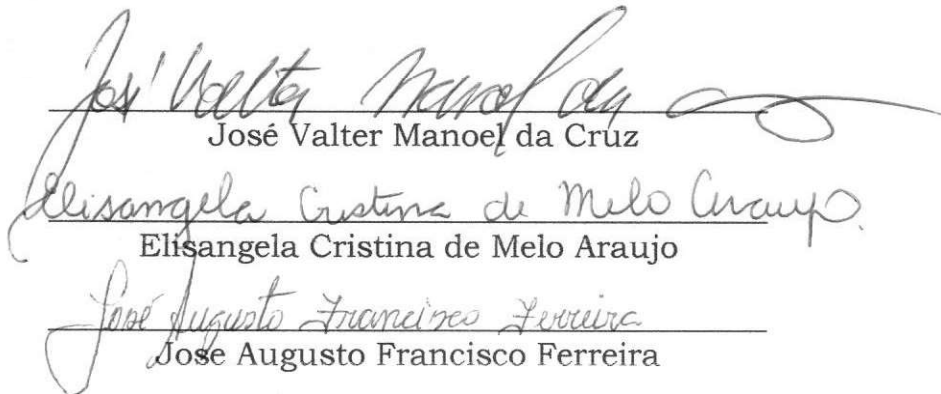 José Valter Manoel da
José Valter Manoel da Cruz
Elisangela Cristina de Melo Araujo.
Elisangela Cristina de Melo Araujo
José Augusto Francisco Ferreira
Jose Augusto Francisco Ferreira